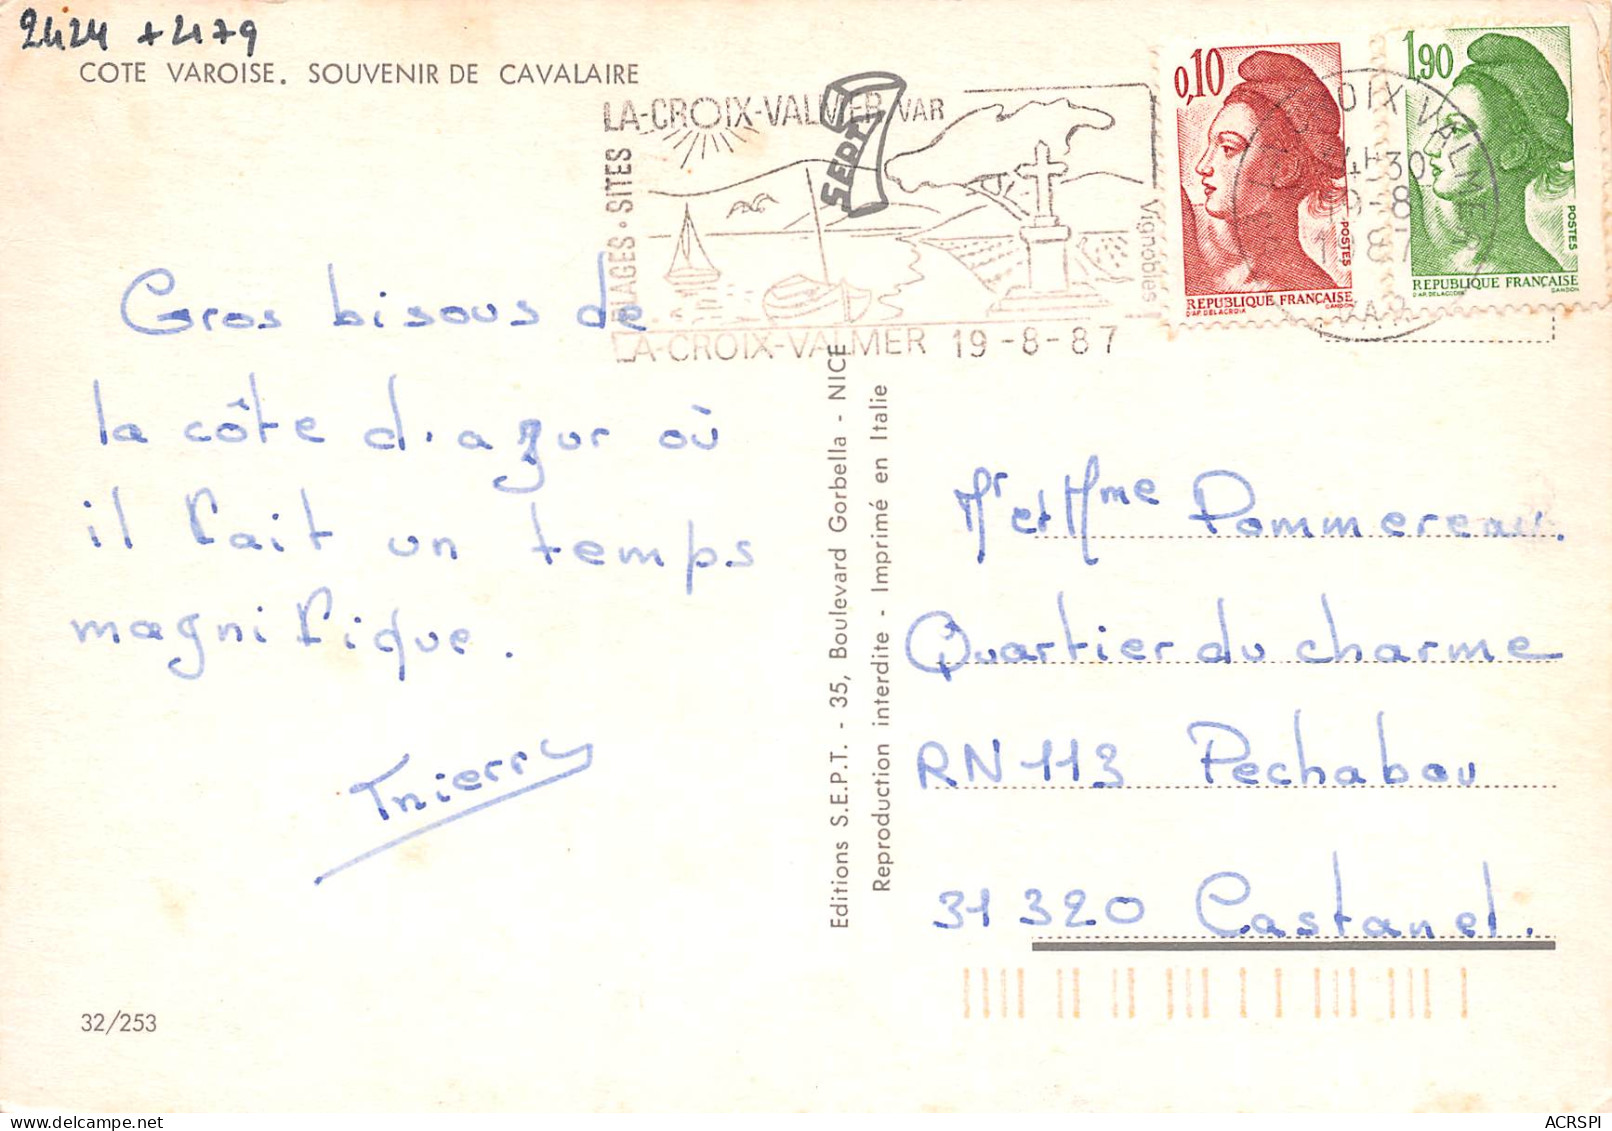 2424 + 2479
COTE VAROISE. SOUVENIR DE CAVALAIRE
LA-CROIX-VALMER, VAR
PLAGES · SITES
Vignobles
SEPT
LA-CROIX-VALMER 19-8-87
0,10
POSTES
REPUBLIQUE FRANÇAISE
D'AP. DELACROIX GANDON
1,90
POSTES
REPUBLIQUE FRANÇAISE
D'AP. DELACROIX GANDON
CROIX VALMER
VAR
Gros bisous de
la côte d'azur où
il fait un temps
magnifique.
Thierry
Editions S.E.P.T. - 35, Boulevard Gorbella - NICE
Reproduction interdite - Imprimé en Italie
Mr et Mme Pommereau.
Quartier du charme
RN 113 Pechabou
31 320 Castanet.
32/253
ACRSPI